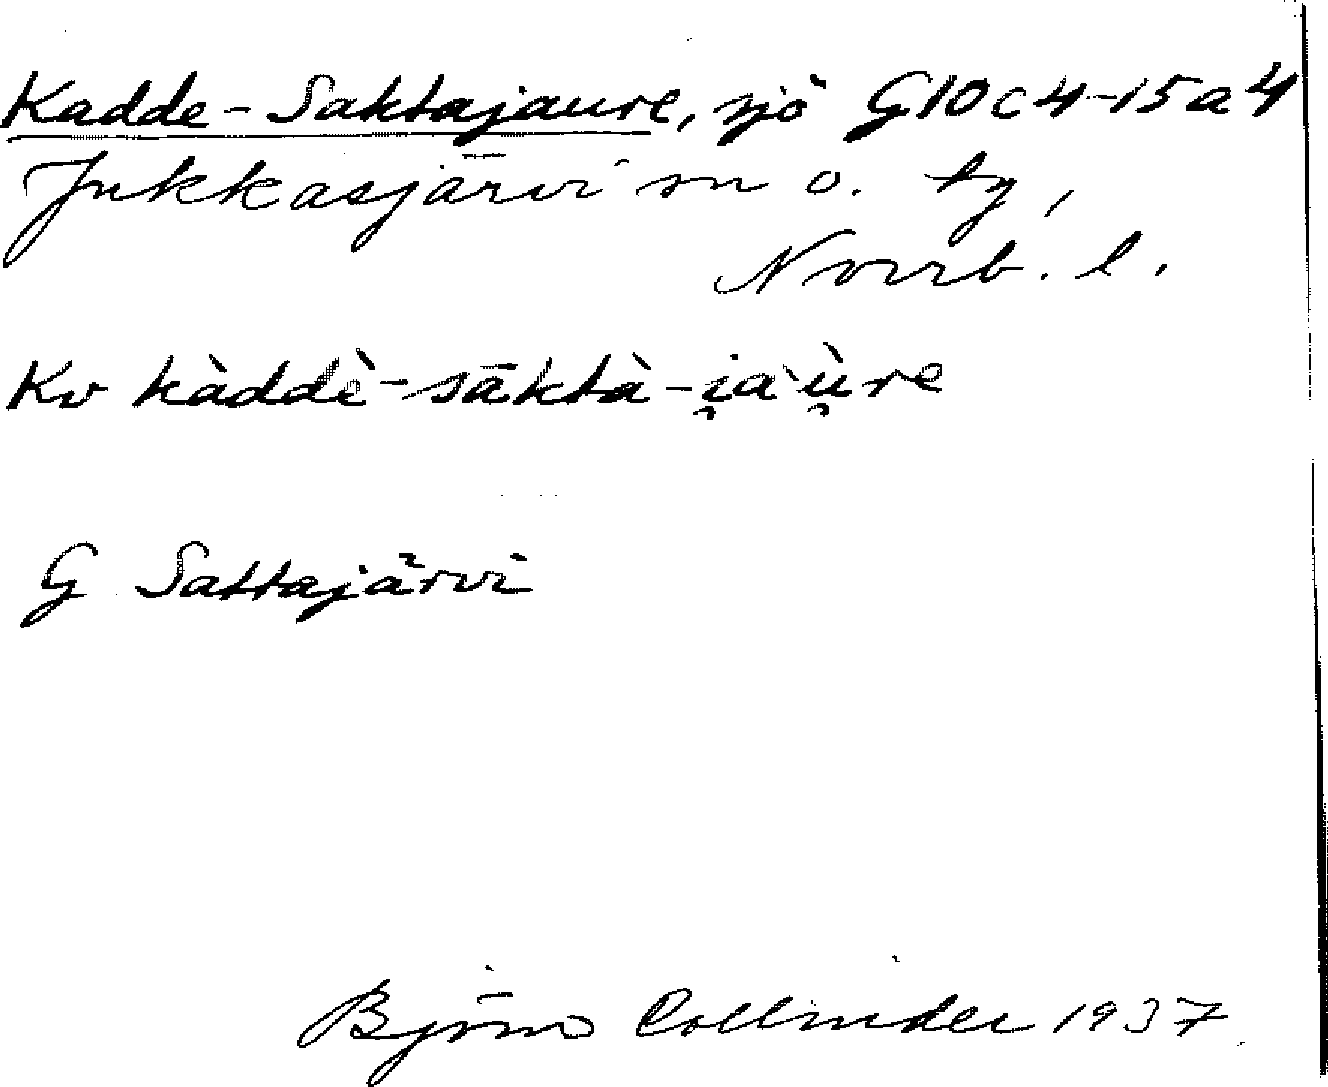 Kadde-Saktajaure, sjö G10c4-15a4
Jukkasjärvi sn o. tg,
Norrb. l.
Kv kàddè-sāktà-i̯à u̯̇̀re
G Sattajärvi
Björn Collinder 1937